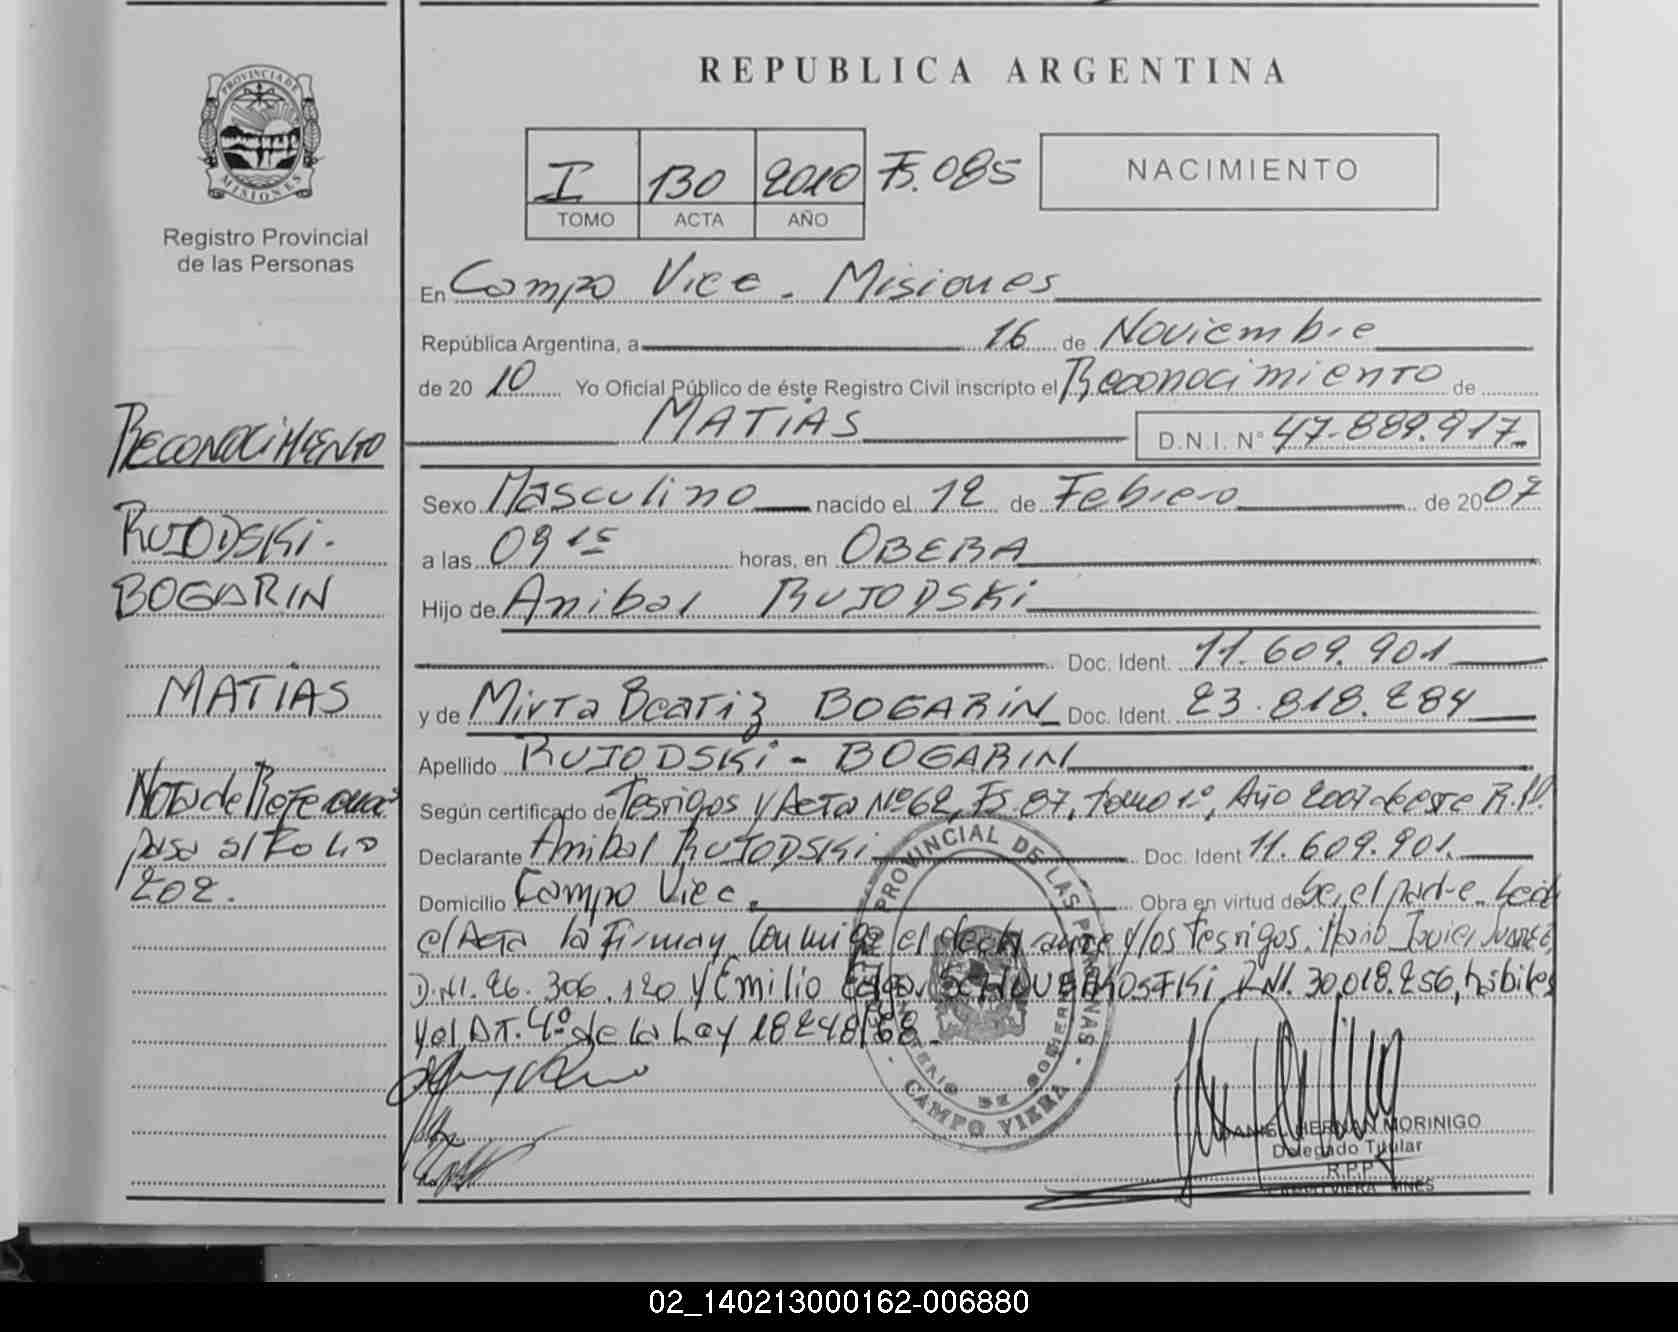 REPUBLICA ARGENTINA
PROVINCIA DE
MISIONES
Registro Provincial
de las Personas
I 130 2010 Fs. 085
TOMO ACTA AÑO
NACIMIENTO
En Campo Viee. Misiones
República Argentina, a 16 de Noviembre
de 20 10 Yo Oficial Público de éste Registro Civil inscripto el Reconocimiento de
MATIAS D.N.I. Nº 47.889.917
Sexo Masculino nacido el 12 de Febrero de 20 07
a las 09 15 horas, en OBERA
Hijo de Anibal RUJODSKi
Doc. Ident. 11.609.901
y de Mirta Beatiz BOGARIN Doc. Ident. 23.818.284
Apellido RUJODSKi - BOGARIN
Según certificado de Testigos y Acta Nº 62, Fs. 87, Tomo 1º, Año 2007 de este R.P.
Declarante Anibal RUJODSKi Doc. Ident 11.609.901.
Domicilio Campo Viee. Obra en virtud de Ser el padre. Leida
el Acta la Firman Conmigo el declarante y los Testigos. Mario Javier JUAREZ
D.N.I. 26.306.120 y Emilio D.N.I. 30.018.256, hábiles
y el AT. 4º de la Ley 18248/68.
RECONOCIMIENTO
RUJODSKi.
BOGARIN
MATIAS
Nota de Referencia
pasa al Folio
202.
PROVINCIAL DE LAS PERSONAS
DE GOBIERNO
- CAMPO VIERA -
DANIEL HERNAN MORINIGO
Delegado Titular
R.P.P.
CAMPO VIERA MNES
02_140213000162-006880